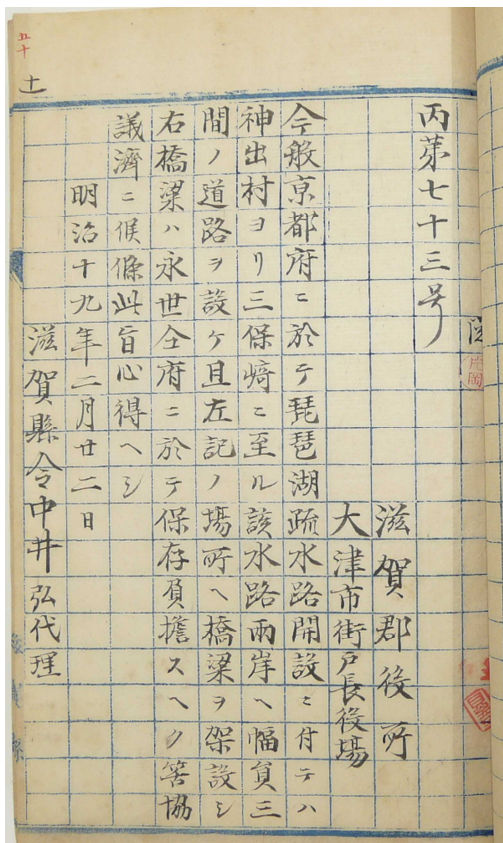 丙第七十三号
滋賀郡役所
大津市街戸長役場
今般京都府ニ於テ琵琶湖疏水路開設ニ付テハ
神出村ヨリ三保﨑ニ至ル該水路両岸ヘ幅員三
間ノ道路ヲ設ケ且左記ノ場所ヘ橋梁ヲ架設シ
右橋梁ハ永世仝府ニ於テ保存負擔スヘク筈協
議濟ニ候條此旨心得ヘシ
明治十九年二月廿二日
滋賀縣令中井弘代理
五十
十一
片岡